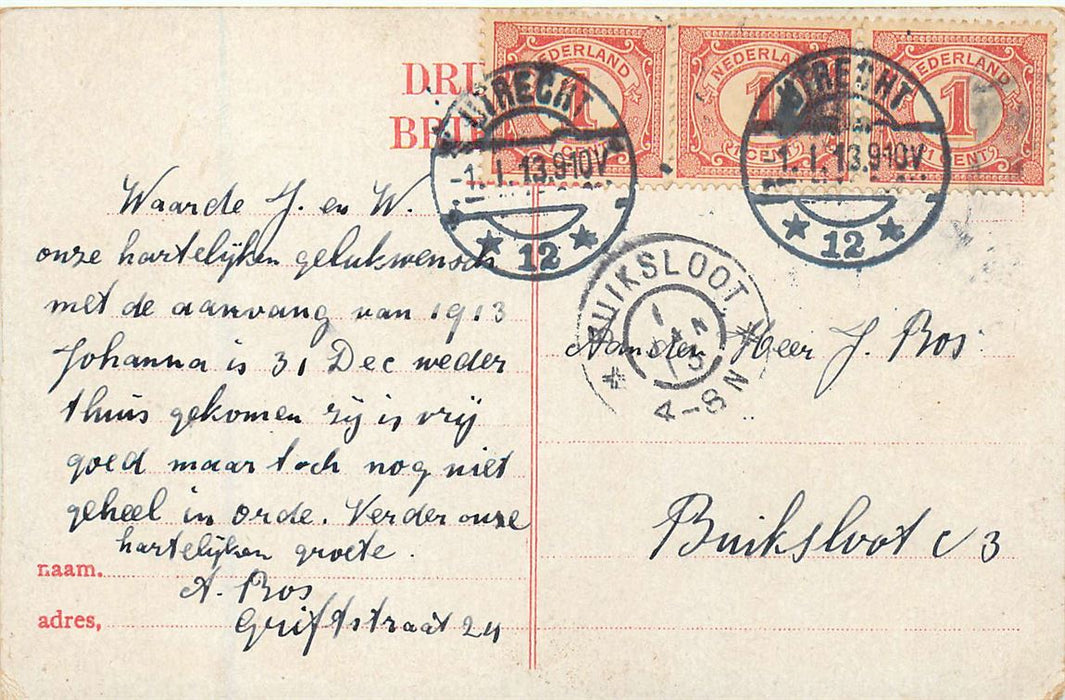 DRU
BRIE
NEDERLAND
1
1 CENT
NEDERLAND
1
1 CENT
NEDERLAND
1
1 CENT
UTRECHT
-1.1.13.9-10V
* 12 *
UTRECHT
-1.1.13.9-10V
* 12 *
* BUIKSLOOT *
1 JAN 13
8-N
Waarde J. en W.
onze hartelijken gelukwensch
met de aanvang van 1913
Johanna is 31 Dec weder
thuis gekomen zij is vrij
goed maar toch nog niet
geheel in orde. Verder onze
hartelijken groete.
naam. A. Bos
adres, Griftstraat 24
Aan den Heer J. Bos
Buiksloot C 3